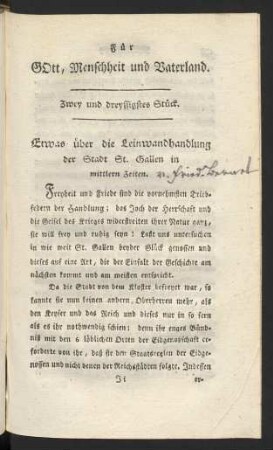 Für
GOtt, Menschheit und Vaterland.
Zwey und dreyssigstes Stück.
Etwas über die Leinwandhandlung
der Stadt St. Gallen in
mittlern Zeiten.
Freyheit und Friede sind die vornehmsten Trieb-
federn der Handlung: das Joch der Herrschaft und
die Geisel des Krieges widerstreiten ihrer Natur ganz,
sie will frey und ruhig seyn! Laßt uns untersuchen
in wie weit St. Gallen beyder Glück genossen und
dieses auf eine Art, die der Einfalt der Geschichte am
nächsten kommt und am meisten entspricht.
Da die Stadt von dem Kloster befreyet war, so
kannte sie nun keinen andern, Oberherren mehr, als
den Keyser und das Reich und dieses nur in so fern
als es ihr nothwendig schien; denn ihr enges Bünd-
niß mit den 6 löblichen Orten der Eidgenossschaft er-
forderte von ihr, daß sie den Staatsregien der Eidge-
nossen und nicht denen der Reichsstädten folgte. Indessen
Ji er-